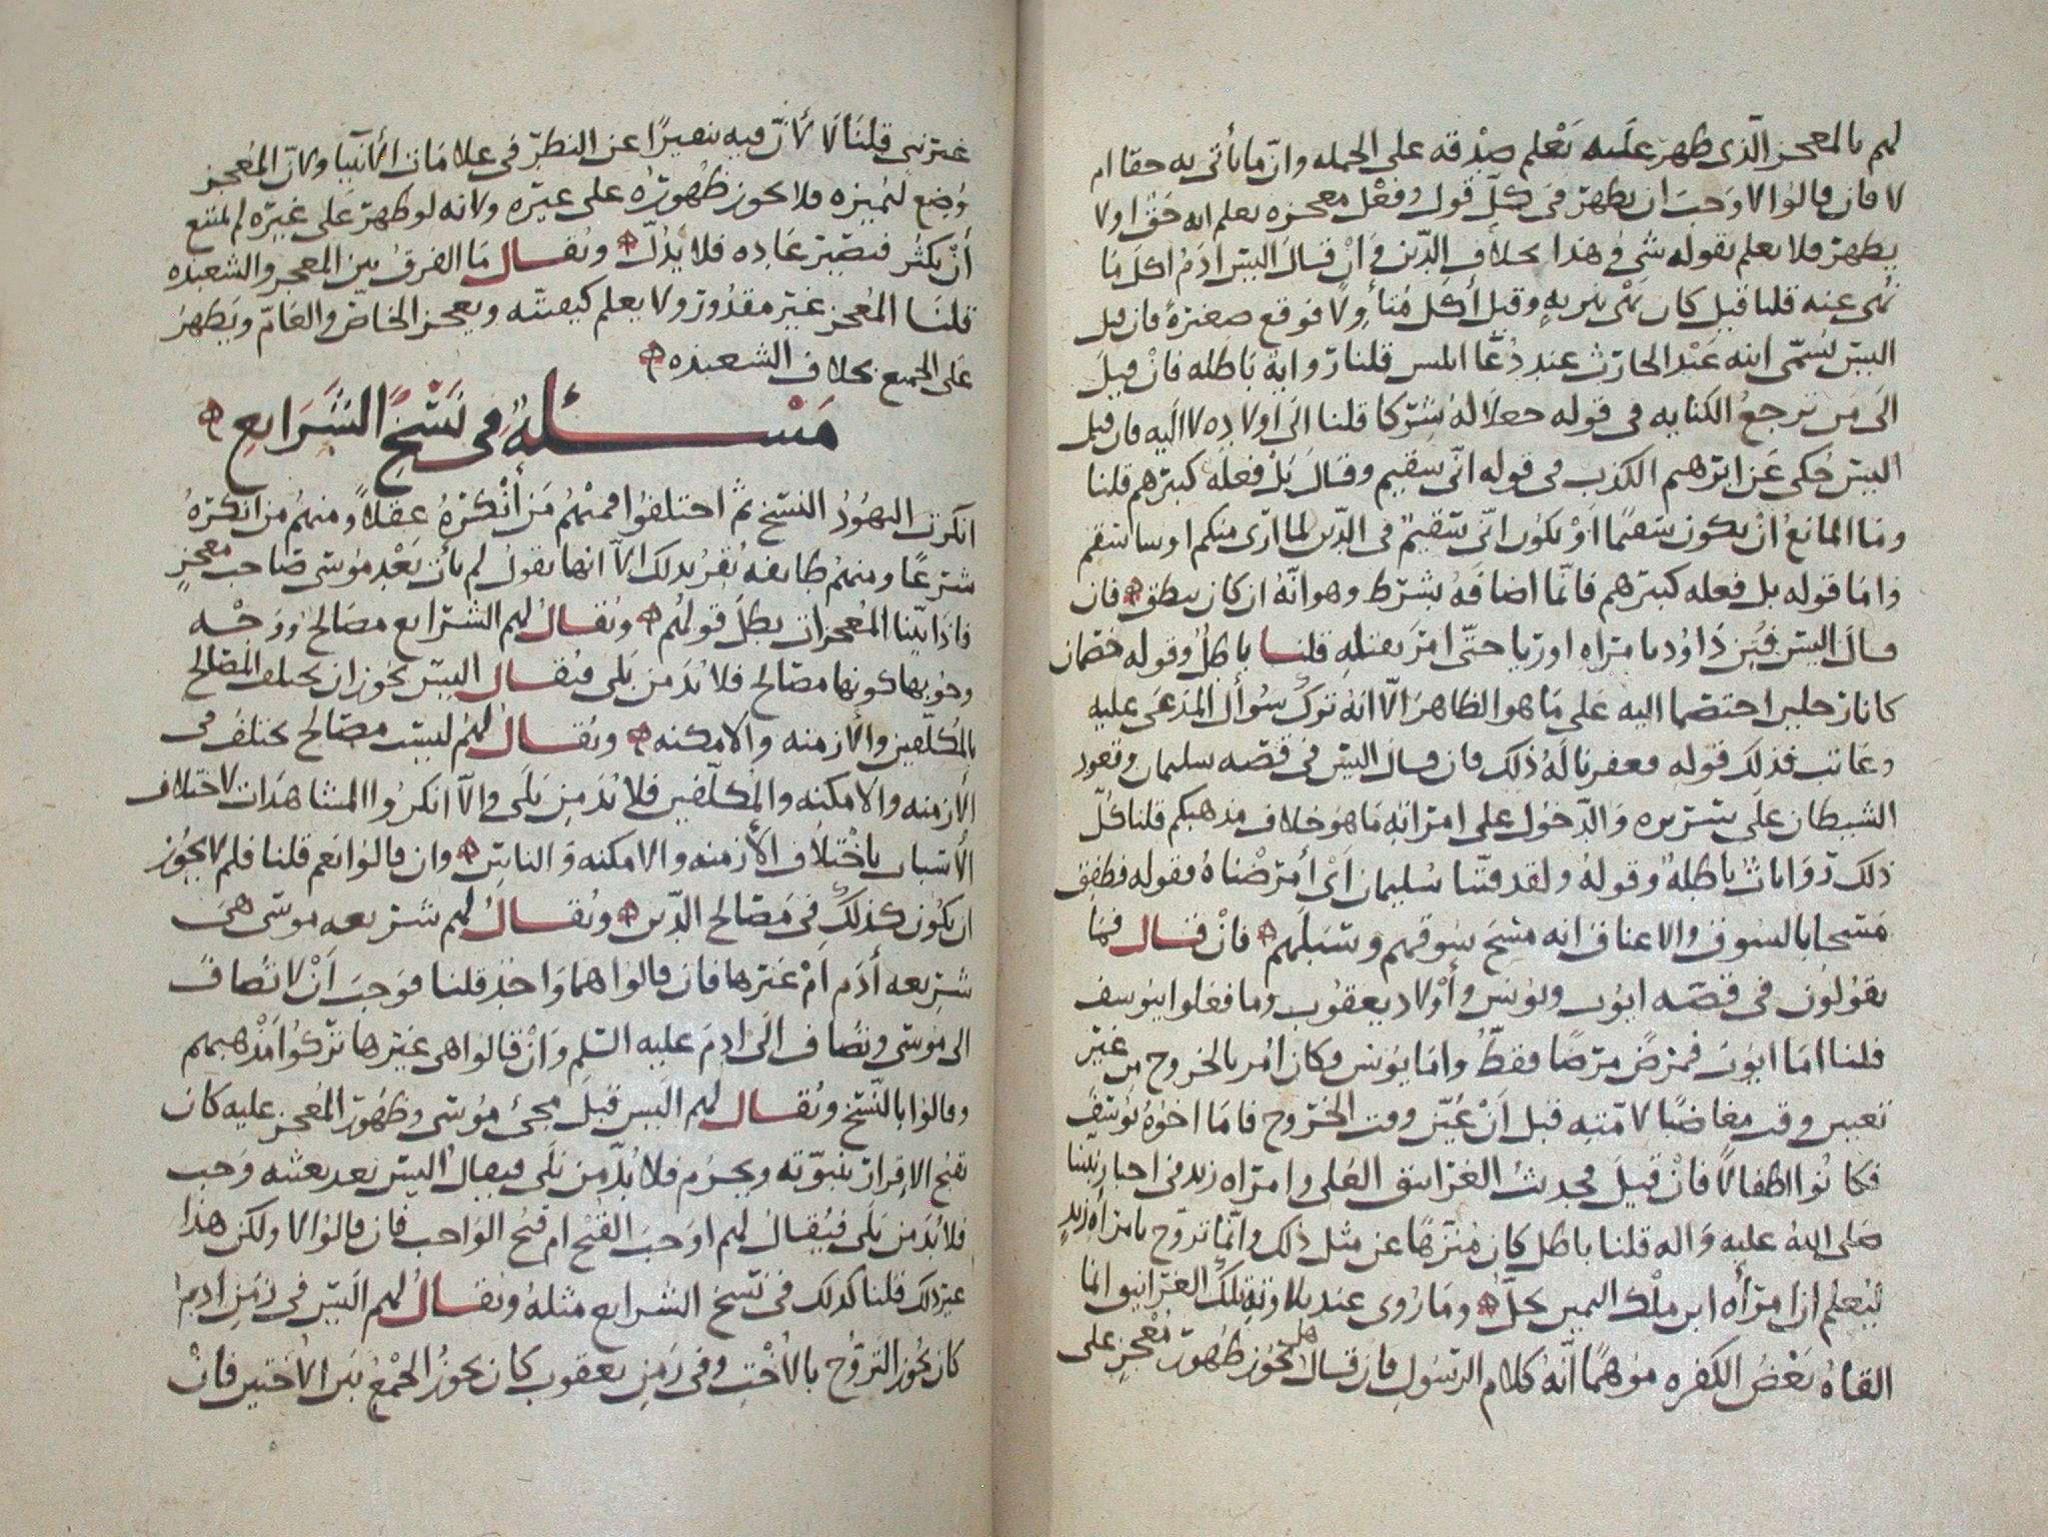 لهم بالمعجز الّذي ظهر عليه نعلم صِدْقه على الجمله وانّ ما يأتي به حقا ام
لا فان قالوا لا وَجَبَ ان يظهر في كلّ قول وفعْل معجزه يعلم انه حَقّ او لا
يظهر فلا يعلم بقوله شي وهذا بخلاف الدّين وَانْ قالَ اليسَ ادَمُ اكل مَا
نُهي عنه قلنا قيل كان نَهْي تنزيهٍ وقيل أكَل مُتأولا فوقع صغيرةً فان قيل
اليسَ سُمّي ابنه عَبْد الحارث عند دُعَا ابليس قلنا رواية باطله فانْ قيلَ
الَى مَن ترجعُ الكنايه في قوله جعلا لهُ شركا قلنا الَى اولاده لا اليه فان قيل
اليسَ حُكي عَن ابرهيم الكذب في قوله انّي سقيم وقالَ بَلْ فعلَه كبيرهم قلنا
ومَا المانعُ انْ يكون سَقيمًا اوْ يكون انّي سَقيمٌ في الدّين لما ارَى منكم او ساسقم
وَامَا قوله بل فعله كبيرهم فانّما اضافهُ بشرط وهو انّهُ ان كان ينطق فان
قال اليس فُتِن دَاوُد بامراه اوريا حتّى امَر بقتلهِ قلنا باطلٌ وقوله خصْمان
كانا رجلين اختصما اليه عَلى مَا هو الظاهرُ الّا انهُ ترك سُوأل المدعَى عليه
وعَاتب فذلكَ قوله فغفرنا لَهُ ذلك فان قال اليسَ في قصّه سليمان وقعود
الشيطان علَى سَريره وَالدّخول على امرَاته مَا هوَ خلاف مذهبكم قلنا كلّ
ذلك رَوَاياتٌ باطلهٌ وقولهُ ولقد فتنّا سُليمان اَيْ أمرَضْناهُ فقوله فطفق
مَسْحا بالسّوق والاعناق انه مسَحَ سوقهم وسَبلَهم فانْ قال فما
تقوُلون في قصّه ايوُب ويوُنس وأوْلاد يعقوُب وما فعلوا بيوُسف
قلنا امَا ايوُب فمرِضَ مرَضًا فقطُ وامَا يوُنس فكان امُر بالخروج من غيْر
تعيين وقت مغاضبًا لامّته قبل اَنْ عُيّن وقت الخرُوج فامَا اخوَهُ يوُسف
فكانُوا اطفالًا فانْ قيلَ فحديثُ الغرَانيق العُلى وامرَاه زيد في اخبار نبيّنا
صَلى اللهُ عليه وَاله قلنا باطل كان مُنزّهًا عن مثل ذلك وانّما تزوّج بامرأة زيدٍ
ليُعلم ان امرَأه ابن ملْك اليمين تحلّ ومَا رُوي عند تلاوته تلك الغرانيق انما
القاهُ بَعْض الكفره موُهمًا انّهُ كلام الرسُول فان قالَ هل يجُوز ظهُور مُعْجزٍ على
غيَر نبي قلنا لا لأَنّ فيه تنفيرًا عن النظر في علامَات الأنبيا ولانّ المُعجز
وُضِع لتمييزه فلا يجوز ظهُورُه على غيره ولانه لو ظهرَ عَلى غيره لم يمتنع
أنْ يكثر فتصيرَ عَاده فلا يَدُلّ ويُقال مَا الفرقُ بين المعجز والشعبذه
قلنا المُعجز غيَر مقدُور ولا يعلم كيفيّته ويعجز الخاصّ والعَامّ ويَظهرُ
عَلى الجميع بخلاف الشعبذه
مَسْئلهٌ في نَسْخ الشَرَايعِ
انكَرت اليهُودُ النسْخ ثم اختلفُوا فمنْهُم مَن أنْكرَهُ عقلًا ومنهُم مَن انكرَهُ
شرعًا ومنهُم طايفه تُقر بذلك الّا انها تقولُ لم يأت بَعْد مُوسَى صَاحب معجزٍ
فاذا بيّنا المُعجزات بطلَ قولهُم ويُقالُ لهُم الشرَايع مصَالحُ ووَجْه
وجُوبها كونها مصَالح فلا بُدّ مِن بَلى فيُقال اليسَ يجوُز ان يختلف المصَالح
بالمُكلّفين والأزمنه والامكنه ويُقالُ لهُم ليسَت مصَالح تختلفُ في
الأزمنه والامكنه والمكلّفين فلا بُدّ مِن بَلَى والّا انكرُوا المشاهَدات لاختلاف
الأسباب باختلاف الأزمنه والامكنه وَالناس وان قالوا نعم قلنا فلم لا يجُوز
ان يكون كذلكَ في مَصالح الدّين ويُقالُ لهُم شريعه موسَى هيَ
شريعه أدَم امْ غيَرها فان قالوا هما وَاحدٌ قلنا فوَجبَ أنْ لا تضاف
الى موُسَى وتضاف الَى ادمَ عليه السّلم وَانْ قالوا هي غيَرها ترَكُوا مَذْهبهم
وقالوا بالنّسْخ ويُقال لهم اليس قبلَ مجئ مُوسَى وظهُور المُعجز عليه كان
يقبُح الاقرار بنبوّته ويَحرُم فلا بُدّ من بَلَى فيقالُ اليسَ بعد بعثه وَجب
فلا بُدّ مِن بَلَى فيُقالُ لهم اوجبَ القُبْحُ ام قبُح الوَاجب فان قالوا لا ولكن هذا
غير ذلك قلنا كذلك في نسْخ الشرايع مثلهُ ويُقالُ لهم اليسَ في زمَن ادمَ
كان يجُوز التزوّج بالأُخْت وفي زمَن يعقوب كان يجوزُ الجمْعُ بيَن الأختين فانْ